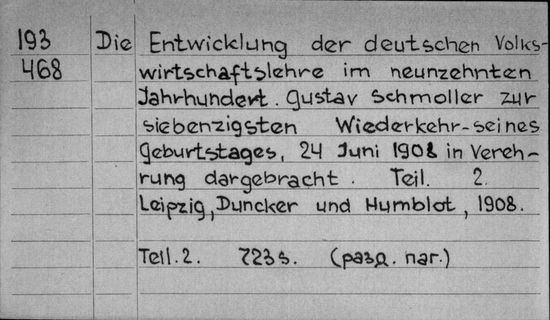 193 Die Entwicklung der deutschen Volks-
468 wirtschaftslehre im neunzehnten
Jahrhundert. Gustav Schmoller zur
siebenzigsten Wiederkehr-seines
Geburtstages, 24 Juni 1908 in Vereh-
rung dargebracht. Teil. 2.
Leipzig, Duncker und Humblot, 1908.
Teil. 2. 723 s. (разд. паг.)